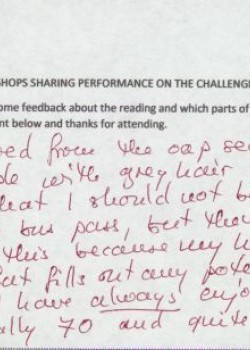 SHOPS SHARING PERFORMANCE ON THE CHALLENGE
ome feedback about the reading and which parts of
nt below and thanks for attending.
ed from the oap se
le with grey hair
hat I should not b
bus pass, but tha
this because my h
at fills out any poto
I have always enjo
ally 70 and quite